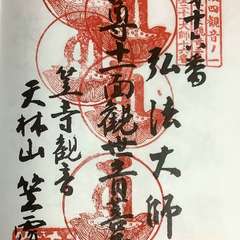 四観音ノ一
十六番
弘法大師
尊十一面観世音菩
笠寺観音
天林山 笠